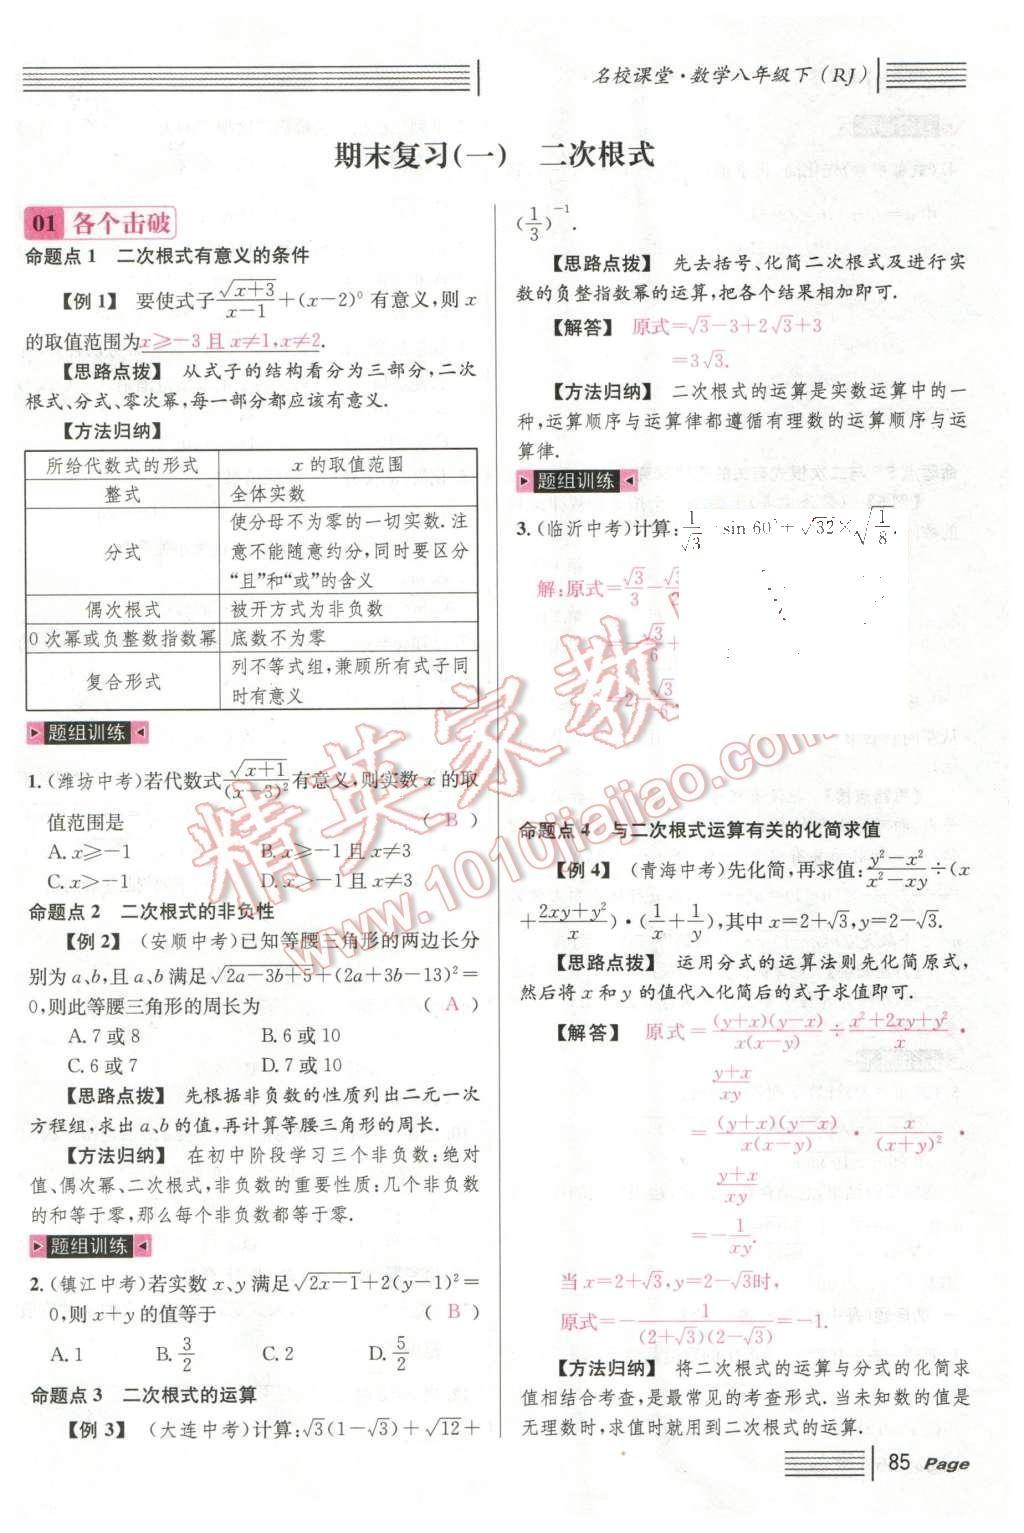 名校课堂·数学八年级下(RJ)
期末复习(一) 二次根式
01 各个击破
命题点1 二次根式有意义的条件
【例1】 要使式子\frac{\sqrt{x+3}}{x-1}+(x-2)^0 有意义,则 x
的取值范围为x≥-3且x≠1,x≠2.
【思路点拨】 从式子的结构看分为三部分,二次
根式、分式、零次幂,每一部分都应该有意义.
【方法归纳】
所给代数式的形式 x 的取值范围
整式 全体实数
分式 使分母不为零的一切实数.注
意不能随意约分,同时要区分
“且”和“或”的含义
偶次根式 被开方式为非负数
0次幂或负整数指数幂 底数不为零
复合形式 列不等式组,兼顾所有式子同
时有意义
题组训练
1.(潍坊中考)若代数式\frac{\sqrt{x+1}}{(x-3)^2}有意义,则实数 x 的取
值范围是 ( B )
A.x≥-1 B.x≥-1且x≠3
C.x>-1 D.x>-1且x≠3
命题点2 二次根式的非负性
【例2】 (安顺中考)已知等腰三角形的两边长分
别为a、b,且a、b满足\sqrt{2a-3b+5}+(2a+3b-13)^2=
0,则此等腰三角形的周长为 ( A )
A.7或8 B.6或10
C.6或7 D.7或10
【思路点拨】 先根据非负数的性质列出二元一次
方程组,求出a、b的值,再计算等腰三角形的周长.
【方法归纳】 在初中阶段学习三个非负数:绝对
值、偶次幂、二次根式,非负数的重要性质:几个非负数
的和等于零,那么每个非负数都等于零.
题组训练
2.(镇江中考)若实数x、y满足\sqrt{2x-1}+2(y-1)^2=
0,则x+y的值等于 ( B )
A.1 B.\frac{3}{2} C.2 D.\frac{5}{2}
命题点3 二次根式的运算
【例3】 (大连中考)计算:\sqrt{3}(1-\sqrt{3})+\sqrt{12}+
(\frac{1}{3})^{-1}.
【思路点拨】 先去括号、化简二次根式及进行实
数的负整指数幂的运算,把各个结果相加即可.
【解答】 原式=\sqrt{3}-3+2\sqrt{3}+3
=3\sqrt{3}.
【方法归纳】 二次根式的运算是实数运算中的一
种,运算顺序与运算律都遵循有理数的运算顺序与运
算律.
题组训练
3.(临沂中考)计算:\frac{1}{\sqrt{3}} sin 60°+\sqrt{32}×\sqrt{\frac{1}{8}}.
解:原式=\frac{\sqrt{3}}{3}-
命题点4 与二次根式运算有关的化简求值
【例4】 (青海中考)先化简,再求值:\frac{y^2-x^2}{x^2-xy}÷(x
+\frac{2xy+y^2}{x})·(\frac{1}{x}+\frac{1}{y}),其中x=2+\sqrt{3},y=2-\sqrt{3}.
【思路点拨】 运用分式的运算法则先化简原式,
然后将x和y的值代入化简后的式子求值即可.
【解答】 原式=\frac{(y+x)(y-x)}{x(x-y)}÷\frac{x^2+2xy+y^2}{x}·
\frac{y+x}{xy}
=\frac{(y+x)(y-x)}{x(x-y)}·\frac{x}{(x+y)^2}·
\frac{y+x}{xy}
=-\frac{1}{xy}.
当x=2+\sqrt{3},y=2-\sqrt{3}时,
原式=-\frac{1}{(2+\sqrt{3})(2-\sqrt{3})}=-1.
【方法归纳】 将二次根式的运算与分式的化简求
值相结合考查,是最常见的考查形式.当未知数的值是
无理数时,求值时就用到二次根式的运算.
85 Page
精英家教
www.1010jiajiao.com